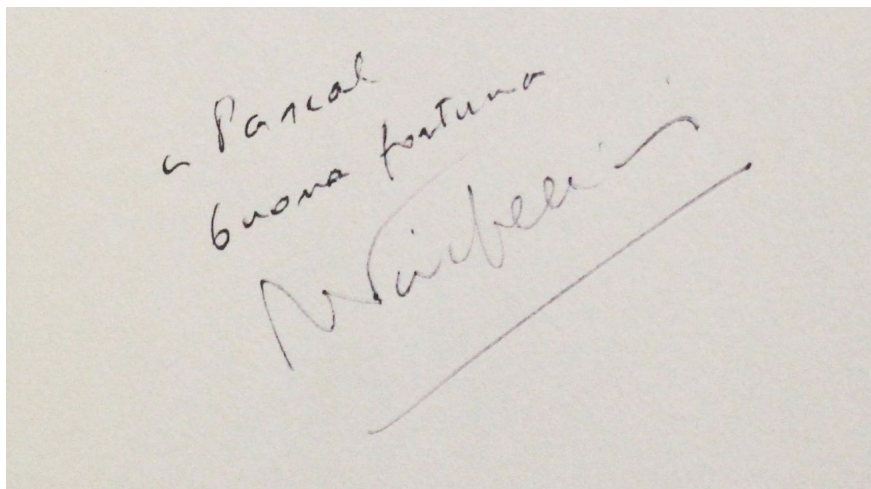 a Pascal
buona fortuna